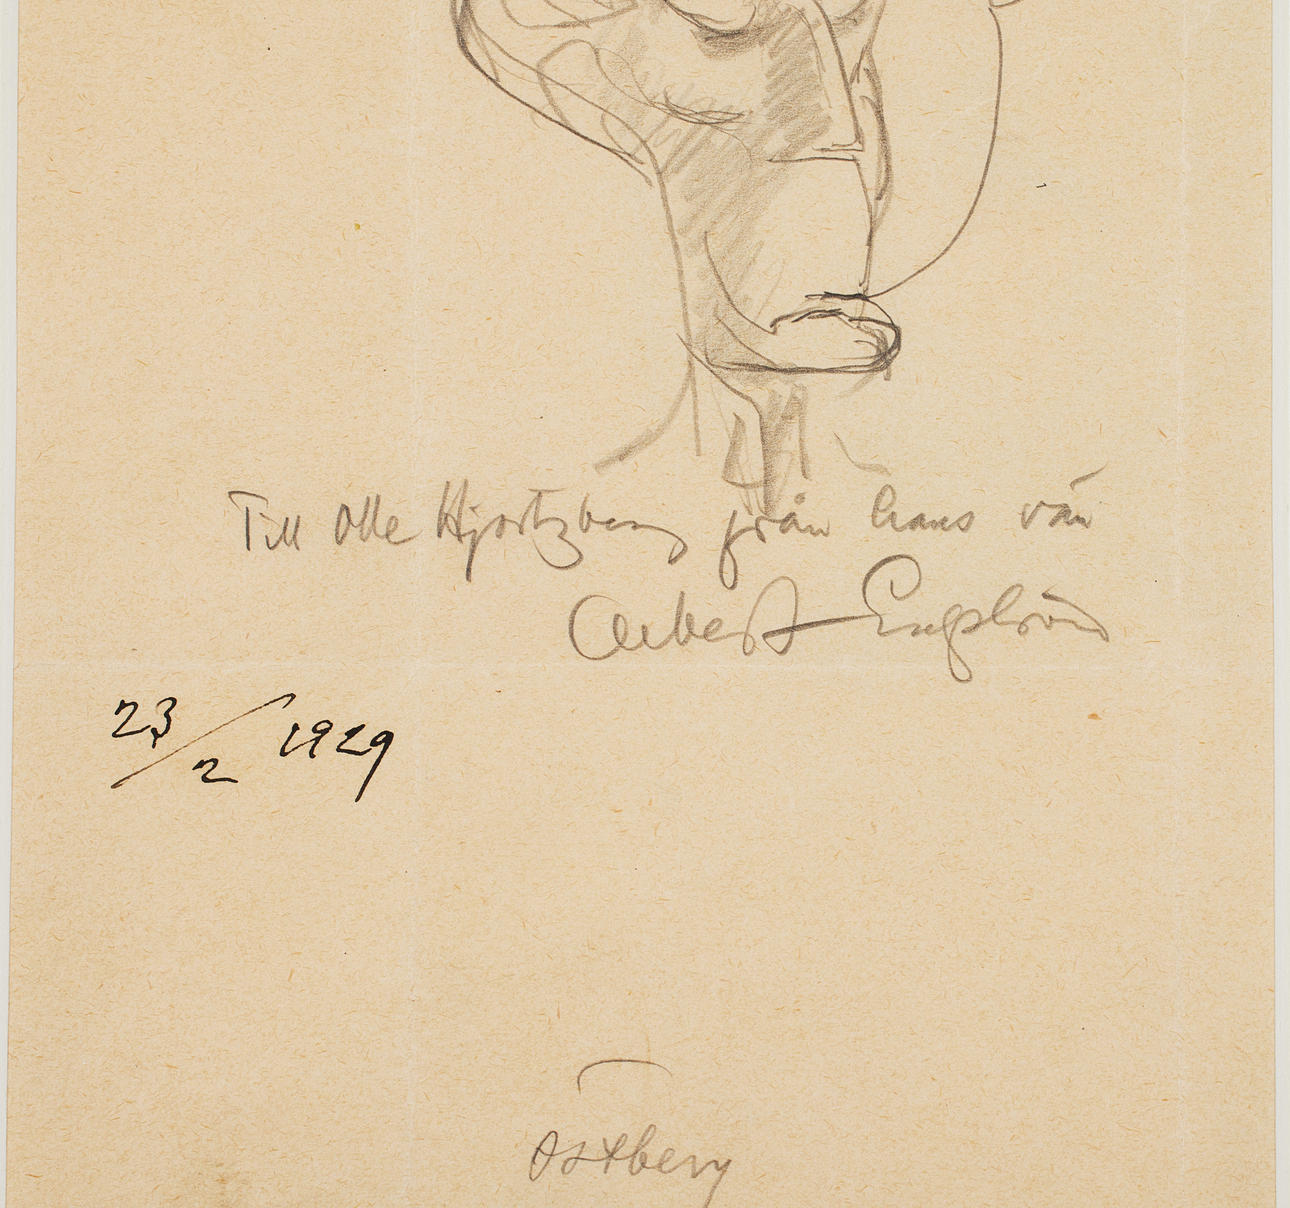 Till Olle Hjortzberg från hans vän
Albert Engström
23/2 1929
Östberg